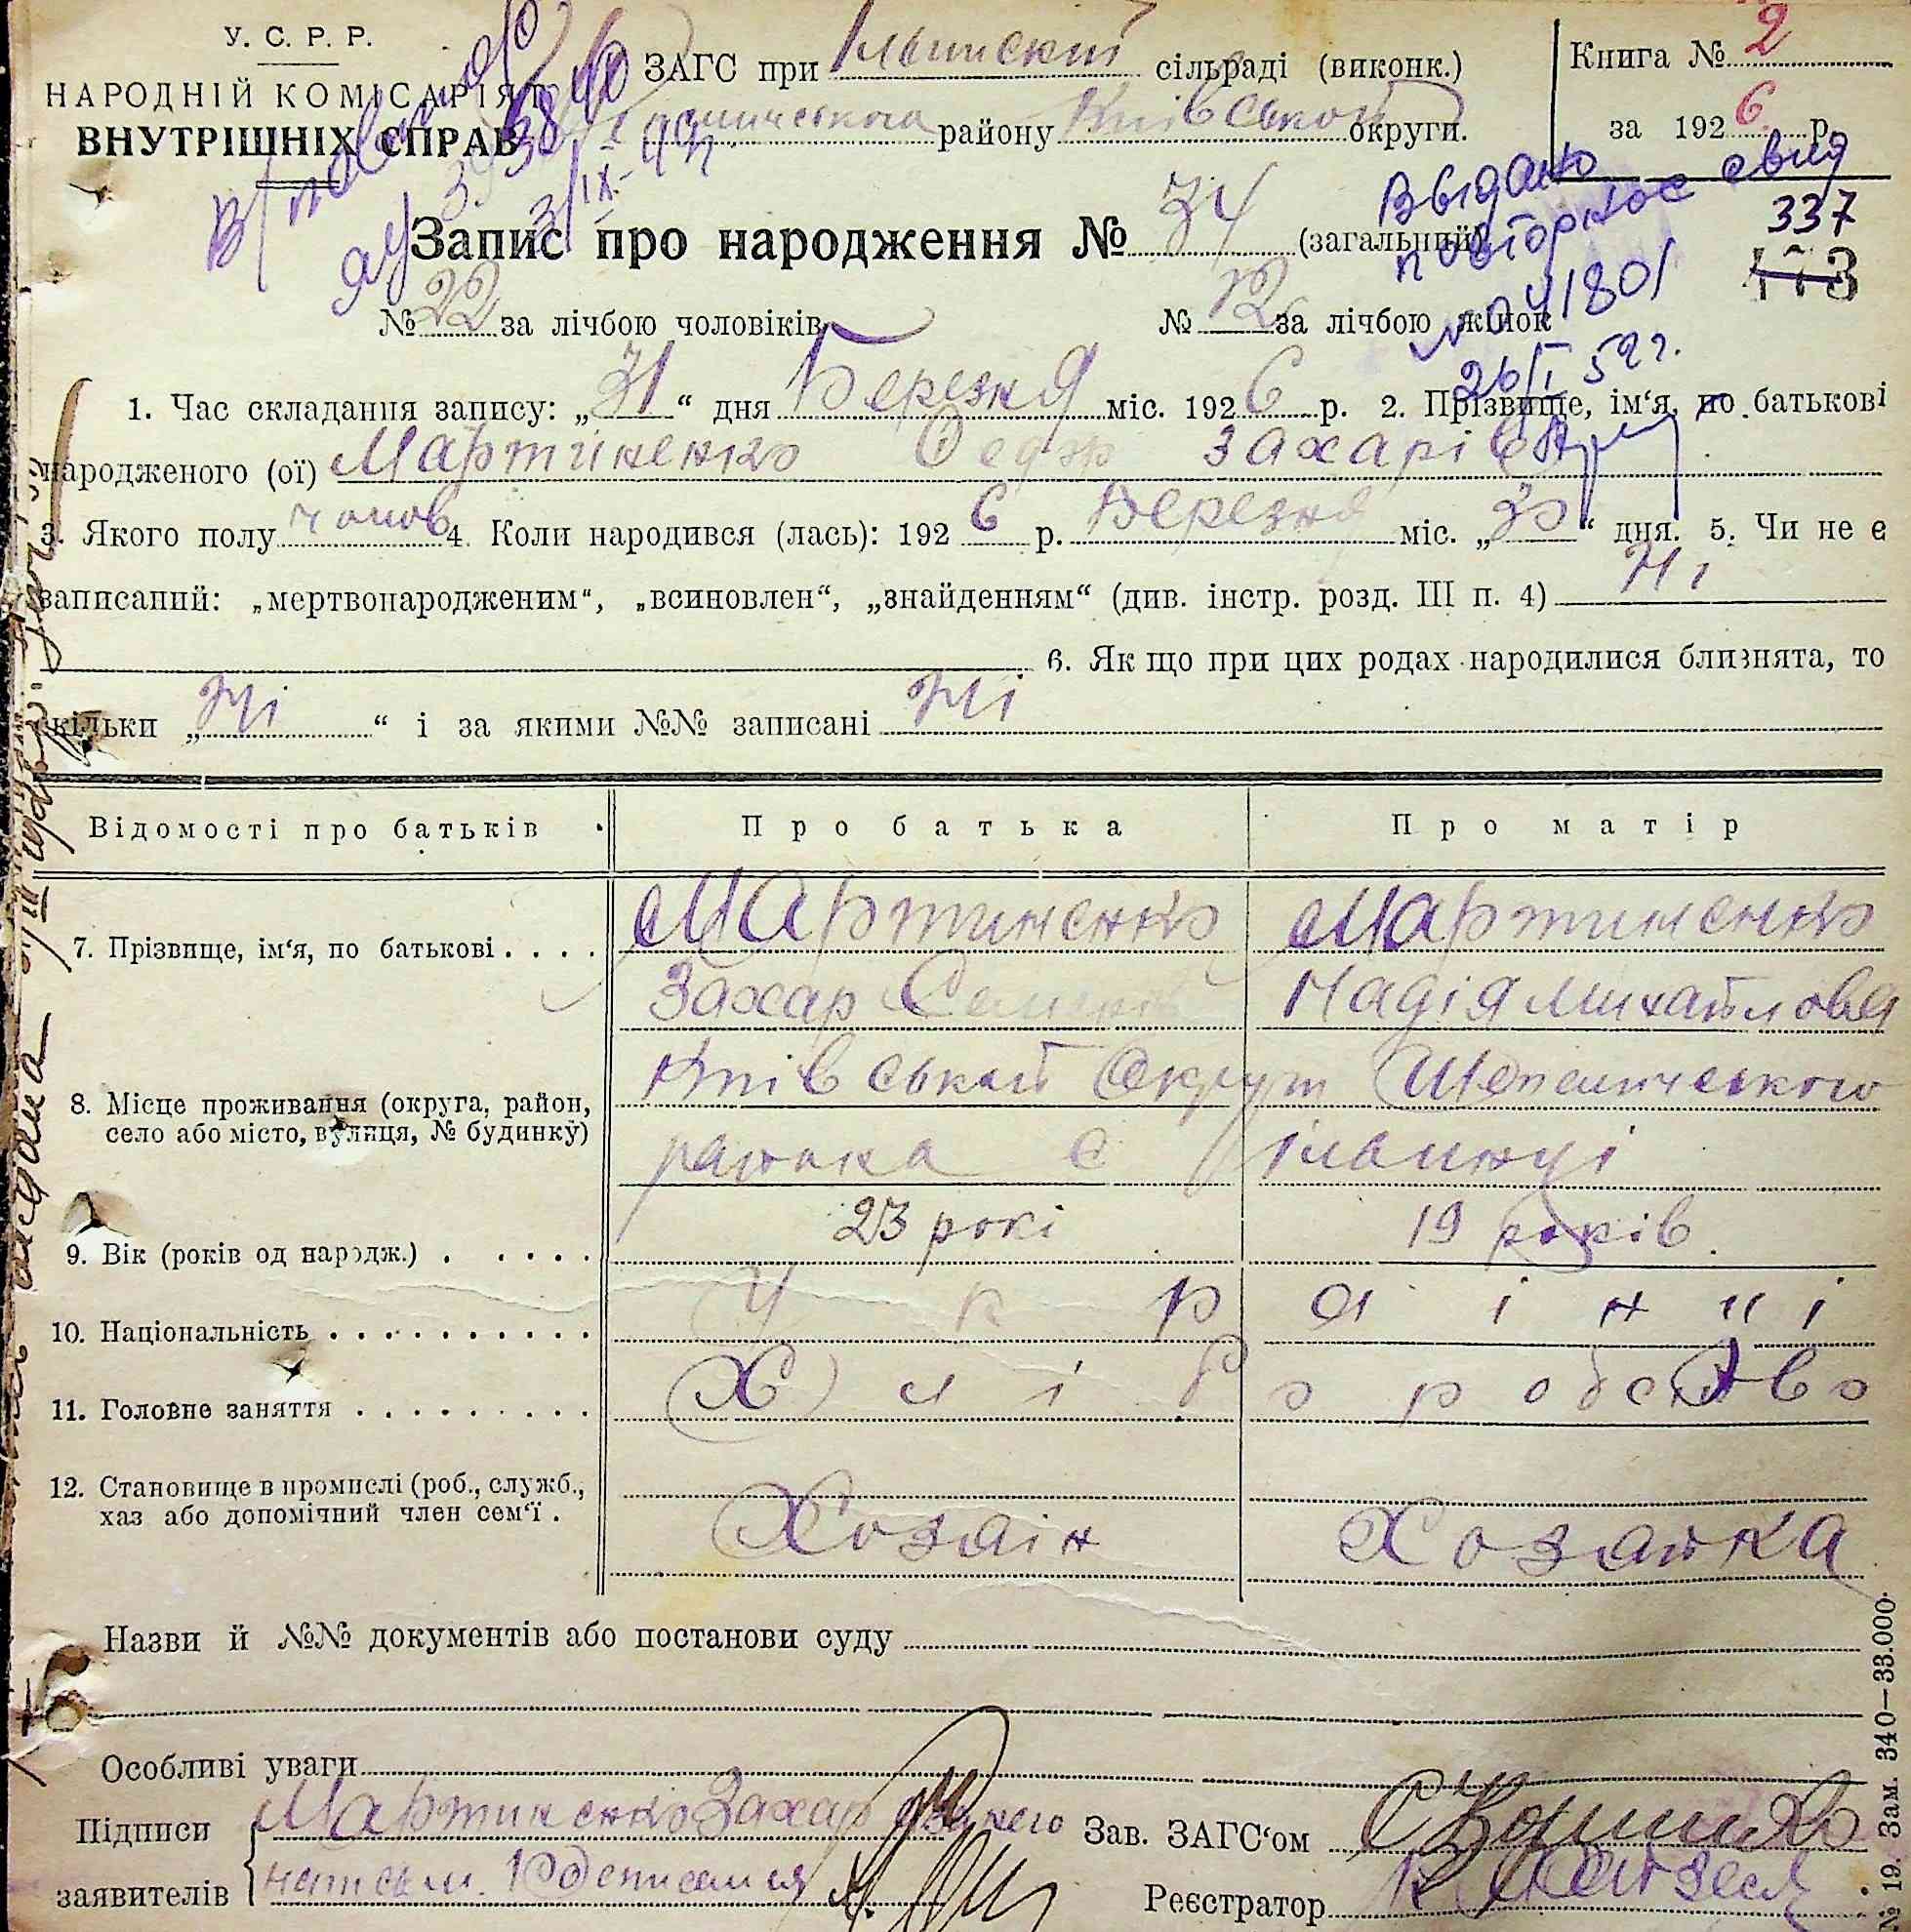 У. С. Р. Р.
НАРОДНІЙ КОМІСАРІЯТ
ВНУТРІШНІХ СПРАВ
ЗАГС при сільраді (виконк.)
району Київської округи.
Книга № 2
за 1926 р.
Видано
повторное свид
№ 041801
26/I 52 г.
337
Запис про народження № 34 (загальний)
№ 22 за лічбою чоловіків № 12 за лічбою жінок
1. Час складання запису: „31“ дня Березня міс. 1926 р. 2. Прізвище, ім‘я, по батькові
народженого (ої) Мартиненко Федор Захарів
3. Якого полу чолов 4. Коли народився (лась): 1926 р. Березня міс. „30“ дня. 5. Чи не є
записаний: „мертвонародженим“, „всиновлен“, „знайденням“ (див. інстр. розд. III п. 4) Ні
6. Як що при цих родах народилися близнята, то
скільки „Ні“ і за якими №№ записані Ні
Відомості про батьків Про батька Про матір
7. Прізвище, ім‘я, по батькові . . . . Мартиненко Мартиненко
Захар Надія Михайлова
8. Місце проживання (округа, район,
село або місто, вулиця, № будинку)
Київськой Округи
района с
9. Вік (років од народж.) . . . . . 23 рокі 19 років.
10. Національність . . . . . . . . . . Українці
11. Головне заняття . . . . . . . . . Хліборобство
12. Становище в промислі (роб., служб.,
хаз або допомічний член сем‘ї .
Хозаін Хозайка
Назви й №№ документів або постанови суду
Особливі уваги
Підписи
заявителів
Мартиненко Захар
Зав. ЗАГС‘ом
Реєстратор
№ 19. Зам. 340—33.000.